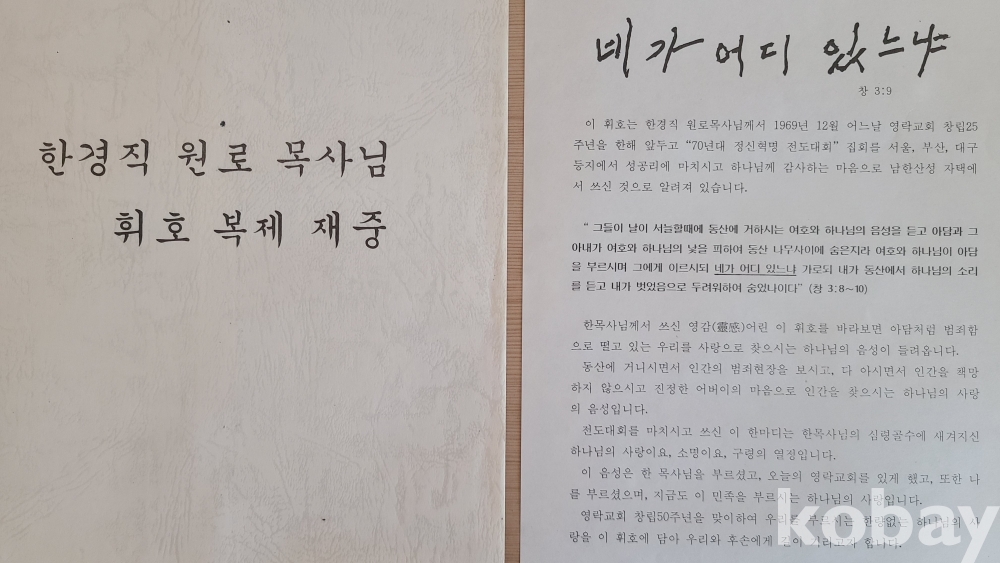 한경직 원로 목사님
휘호 복제 재중
네가 어디 있느냐
창 3:9
이 휘호는 한경직 원로목사님께서 1969년 12월 어느날 영락교회 창립25
주년을 한해 앞두고 “70년대 정신혁명 전도대회” 집회를 서울, 부산, 대구
등지에서 성공리에 마치시고 하나님께 감사하는 마음으로 남한산성 자택에
서 쓰신 것으로 알려져 있습니다.
“ 그들이 날이 서늘할때에 동산에 거하시는 여호와 하나님의 음성을 듣고 아담과 그
아내가 여호와 하나님의 낯을 피하여 동산 나무사이에 숨은지라 여호와 하나님이 아담
을 부르시며 그에게 이르시되 네가 어디 있느냐 가로되 내가 동산에서 하나님의 소리
를 듣고 내가 벗었음으로 두려워하여 숨었나이다” (창 3:8~10)
한목사님께서 쓰신 영감(靈感)어린 이 휘호를 바라보면 아담처럼 범죄함
으로 떨고 있는 우리를 사랑으로 찾으시는 하나님의 음성이 들려옵니다.
동산에 거니시면서 인간의 범죄현장을 보시고, 다 아시면서 인간을 책망
하지 않으시고 진정한 어버이의 마음으로 인간을 찾으시는 하나님의 사랑
의 음성입니다.
전도대회를 마치시고 쓰신 이 한마디는 한목사님의 심령골수에 새겨지신
하나님의 사랑이요, 소명이요, 구령의 열정입니다.
이 음성은 한 목사님을 부르셨고, 오늘의 영락교회를 있게 했고, 또한 나
를 부르셨으며, 지금도 이 민족을 부르시는 하나님의 사랑입니다.
영락교회 창립50주년을 맞이하여 우리를 부르시는 한량없는 하나님의 사
랑을 이 휘호에 담아 우리와 후손에게 합니다.
kobay